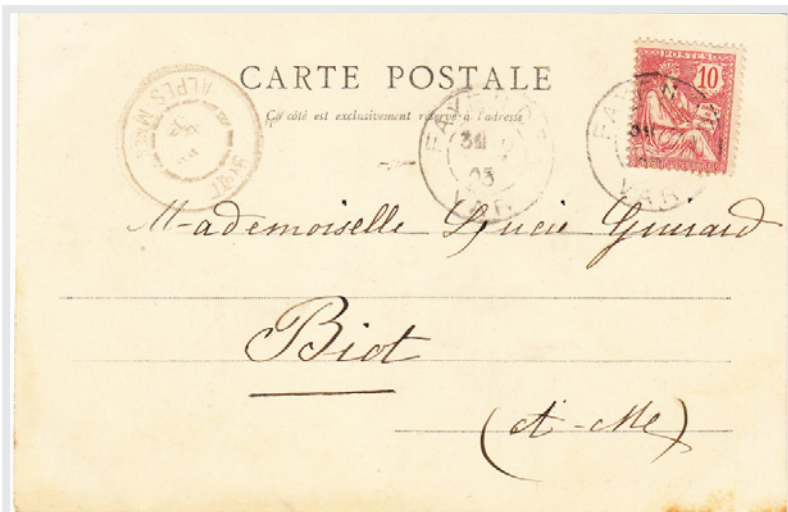 CARTE POSTALE
Ce côté est exclusivement réservé à l'adresse
POSTES
10
ALPES-Mmes
BIOT
FAYENCE
31
03
VAR
FAYEN
VAR
Mademoiselle Lucie Guirard
Biot
(A-Me)